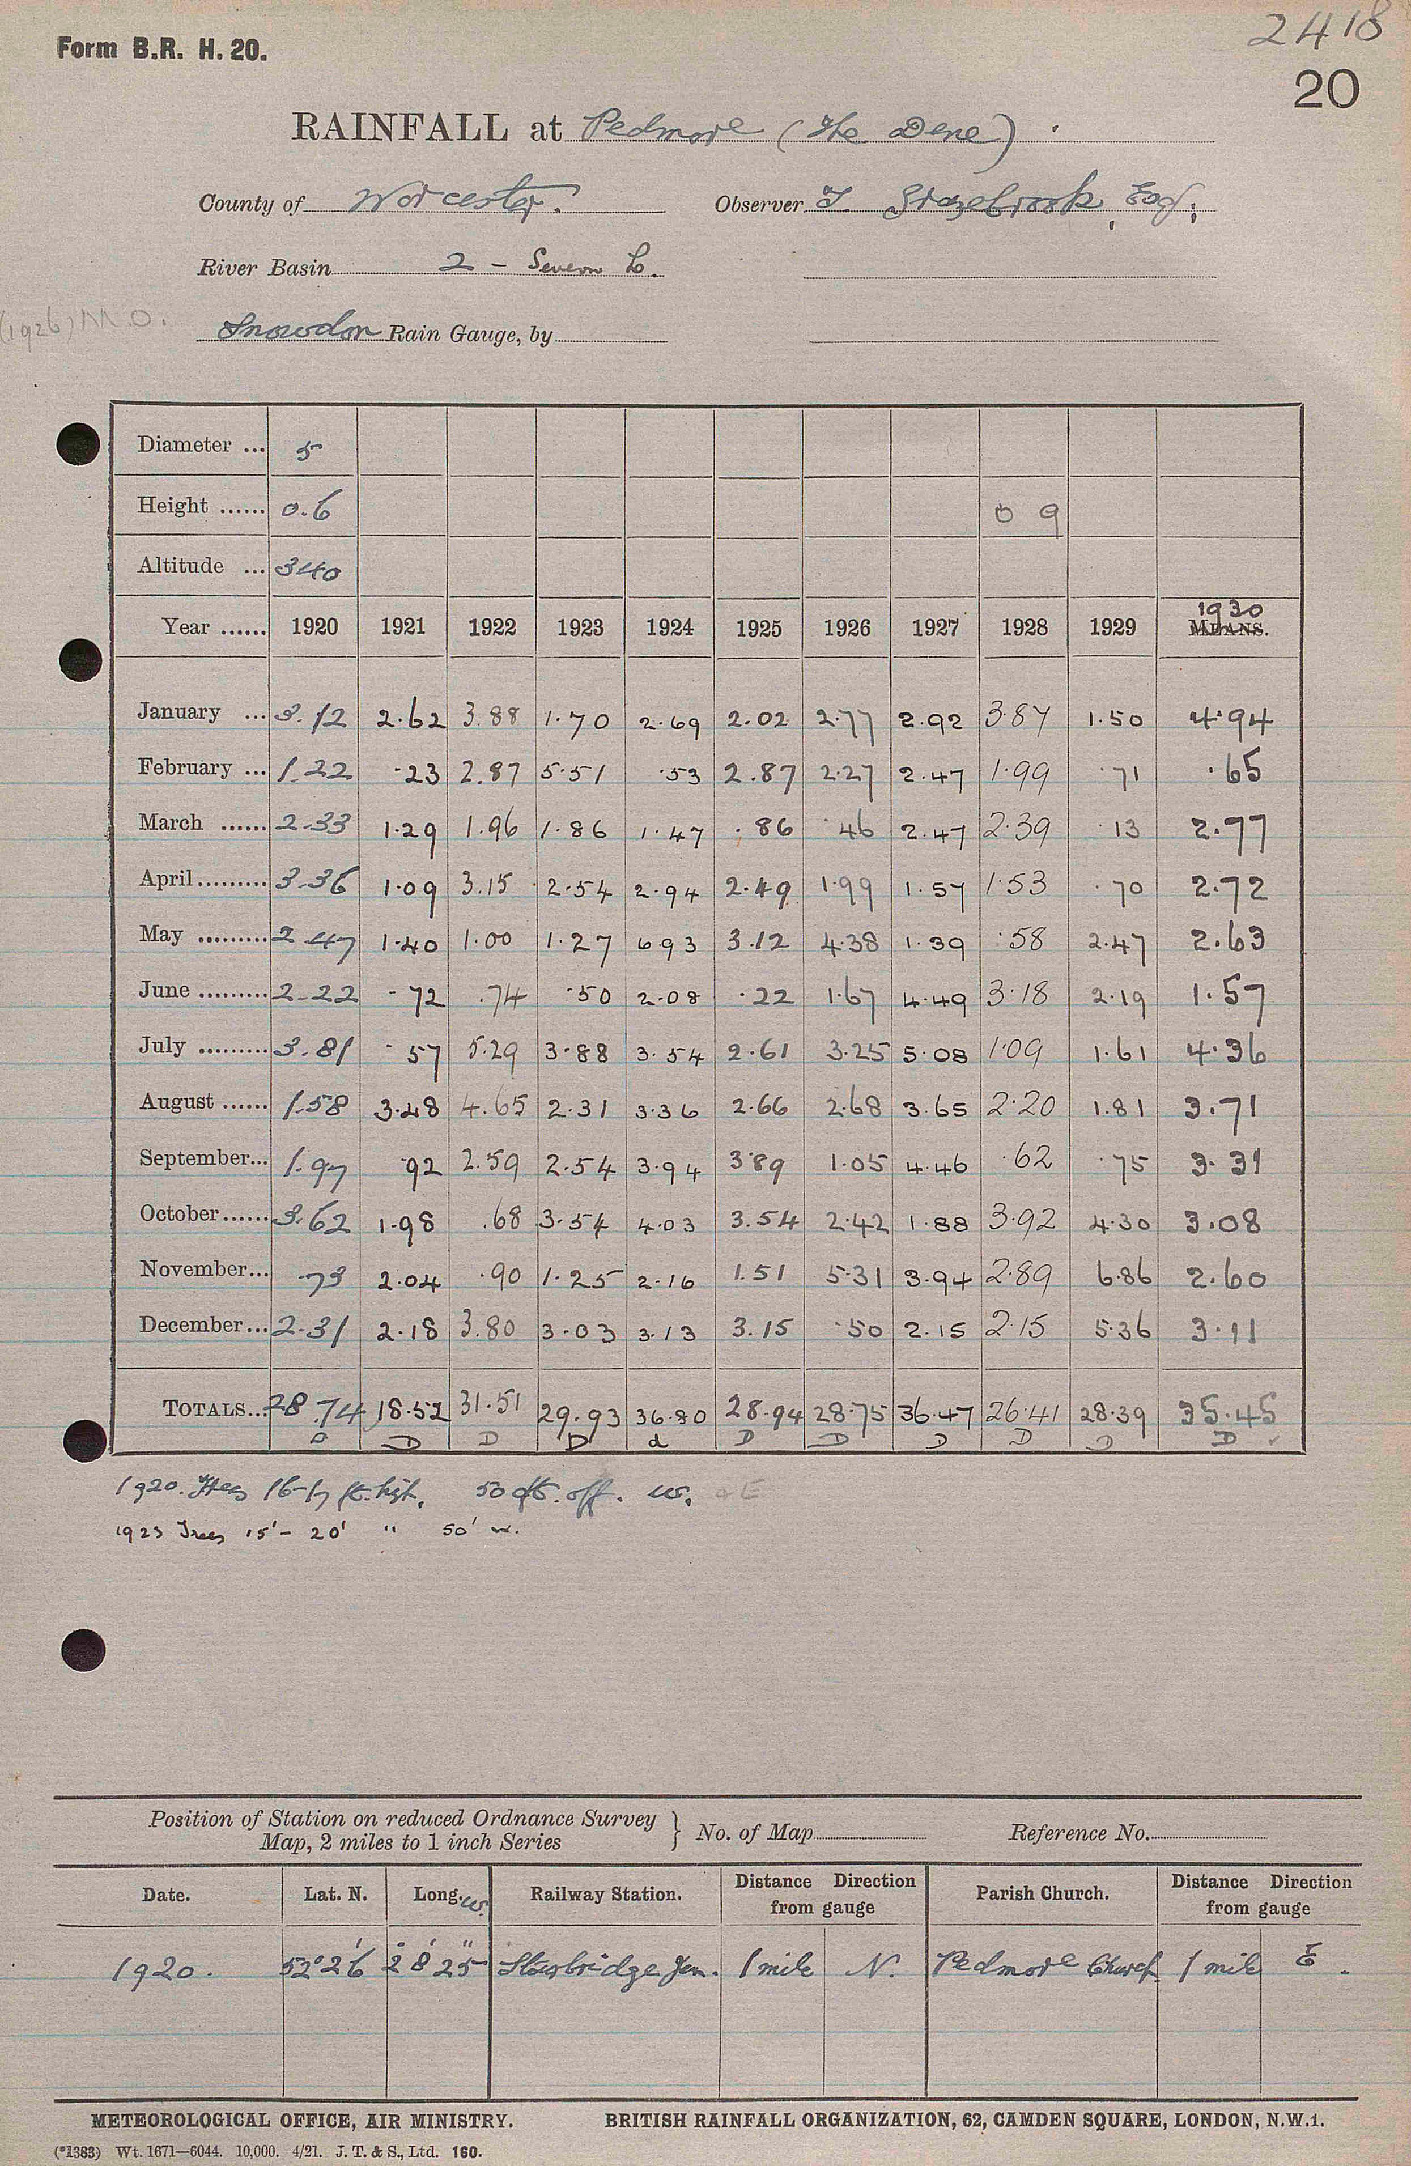 2418
Form B.R. H. 20.
20
RAINFALL at Pedmore (The Dene).
County of Worcester. Observer J Grazebrook, Esq;
River Basin 2 - Severn
(1926) M.O.
Snowdon Rain Gauge, by
Diameter ... 5
Height ...... 0.6 0 9
Altitude ... 340
1930
Year ...... 1920 1921 1922 1923 1924 1925 1926 1927 1928 1929 MEANS.
January ... 3.12 2.62 3.88 1.70 2.69 2.02 2.77 2.92 3.87 1.50 4.94
February ... 1.22 .23 2.87 5.51 .53 2.87 2.27 2.47 1.99 .71 .65
March ...... 2.33 1.29 1.96 1.86 1.47 .86 .46 2.47 2.39 .13 2.77
April......... 3.36 1.09 3.15 2.54 2.94 2.49 1.99 1.57 1.53 .70 2.72
May ......... 2.47 1.40 1.00 1.27 6.93 3.12 4.38 1.39 .58 2.47 2.63
June ......... 2.22 .72 .74 .50 2.08 .22 1.67 4.49 3.18 2.19 1.57
July ......... 3.81 .57 5.29 3.88 3.54 2.61 3.25 5.08 1.09 1.61 4.36
August ...... 1.58 3.48 4.65 2.31 3.36 2.66 2.68 3.65 2.20 1.81 3.71
September... 1.97 .92 2.59 2.54 3.94 3.89 1.05 4.46 .62 .75 3.31
October...... 3.62 1.98 .68 3.54 4.03 3.54 2.42 1.88 3.92 4.30 3.08
November... .73 2.04 .90 1.25 2.16 1.51 5.31 3.94 2.89 6.86 2.60
December... 2.31 2.18 3.80 3.03 3.13 3.15 .50 2.15 2.15 5.36 3.11
TOTALS... 28.74 18.52 31.51 29.93 36.80 28.94 28.75 36.47 26.41 28.39 35.45
D D D D d D D D D D D ✓
1920. Trees 16-17 ft. high. 50 ft. off. W. & E
1923 Trees 15'- 20' " 50' W.
Position of Station on reduced Ordnance Survey
Map, 2 miles to 1 inch Series } No. of Map Reference No.
Date. Lat. N. Long. W. Railway Station. Distance Direction from gauge Parish Church. Distance Direction from gauge
1920. 52° 26' 2° 8' 25" Stourbridge Jun. 1 mile N. Pedmore Church 1 mile E.
METEOROLOGICAL OFFICE, AIR MINISTRY. BRITISH RAINFALL ORGANIZATION, 62, CAMDEN SQUARE, LONDON, N.W.1.
(*1383) Wt. 1671—6044. 10,000. 4/21. J. T. & S., Ltd. 160.